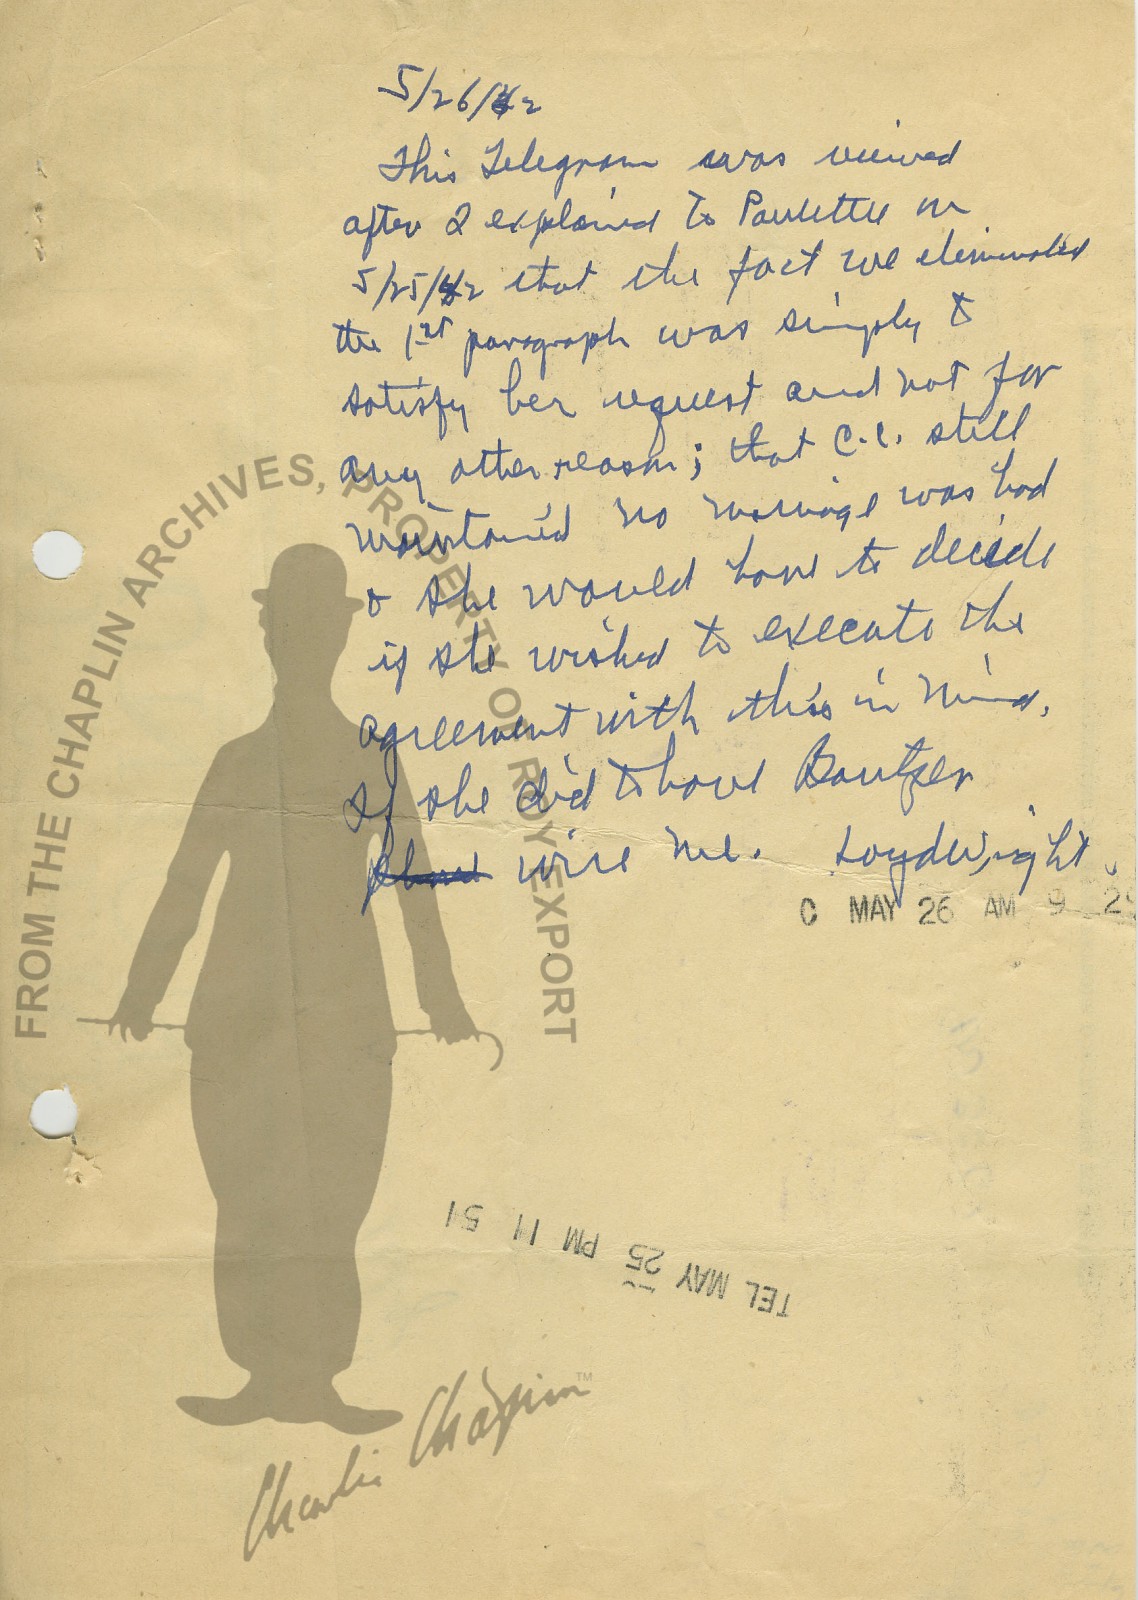 5/26/42
This Telegram was received
after I explained to Paulette on
5/25/42 that the fact we eliminated
the 1st paragraph was simply to
satisfy her request and not for
any other reason; that C.C. still
maintained no marriage was had
& she would have to decide
if she wished to execute the
agreement with this in mind.
If she did to have Bautzer
wire me. Loyd Wright
C MAY 26 AM 9 2
TEL MAY 25 PM 11 51
FROM THE CHAPLIN ARCHIVES, PROPERTY OF ROY EXPORT
Charlie Chaplin TM